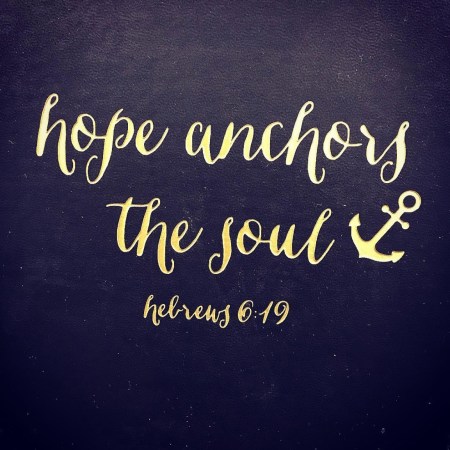 hope anchors
the soul
hebrews 6:19